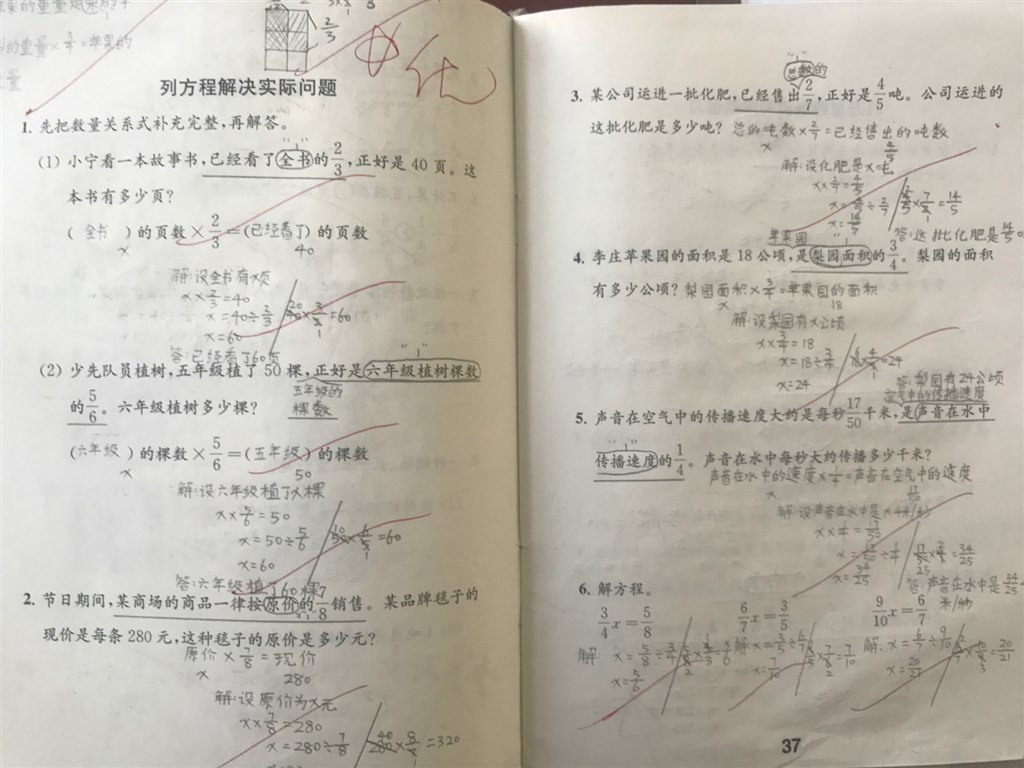 2/3
列方程解决实际问题
优
1. 先把数量关系式补充完整，再解答。
(1) 小宁看一本故事书，已经看了全书的2/3，正好是40页。这
本书有多少页？
(全书)的页数×2/3=(已经看了)的页数
x 40
解:设全书有x页
x×2/3=40
x=40÷2/3
x=60
答:已经看了60页
(2) 少先队员植树，五年级植了50棵，正好是六年级植树棵数
五年级的
棵数
的5/6。六年级植树多少棵？
(六年级)的棵数×5/6=(五年级)的棵数
x 50
解:设六年级植了x棵
x×5/6=50
x=50÷5/6
x=60
答:六年级植了60棵
2. 节日期间，某商场的商品一律按原价的7/8销售。某品牌毯子的
现价是每条280元，这种毯子的原价是多少元？
原价×7/8=现价
x 280
解:设原价为x元
x×7/8=280
x=280÷7/8 280×8/7=320
总数的
3. 某公司运进一批化肥，已经售出2/7，正好是4/5吨。公司运进的
这批化肥是多少吨？ 总的吨数×2/7=已经售出的吨数
x 4/5
解:设化肥是x吨
x×2/7=4/5
x=4/5÷2/7 4/5×7/2=14/5
x=14/5
答:这批化肥是14/5。
苹果园
4. 李庄苹果园的面积是18公顷，是梨园面积的3/4。梨园的面积
有多少公顷？ 梨园面积×3/4=苹果园的面积
x 18
解:设梨园有x公顷
x×3/4=18
x=18÷3/4 18×4/3=24
x=24
答:梨园有24公顷
空气中的传播速度
5. 声音在空气中的传播速度大约是每秒17/50千米，是声音在水中
传播速度的1/4。声音在水中每秒大约传播多少千米？
声音在水中的速度×1/4=声音在空气中的速度
x 17/50
解:设声音在水中是x千米/秒
x×1/4=17/50
x=17/50÷1/4
x=34/25
答:声音在水中是34/25
米/秒
6. 解方程。
3/4x=5/8 6/7x=3/5 9/10x=6/7
解: x=5/8÷3/4 解: x=3/5÷6/7 解: x=6/7÷9/10
x=5/6 x=7/10 x=20/21
37